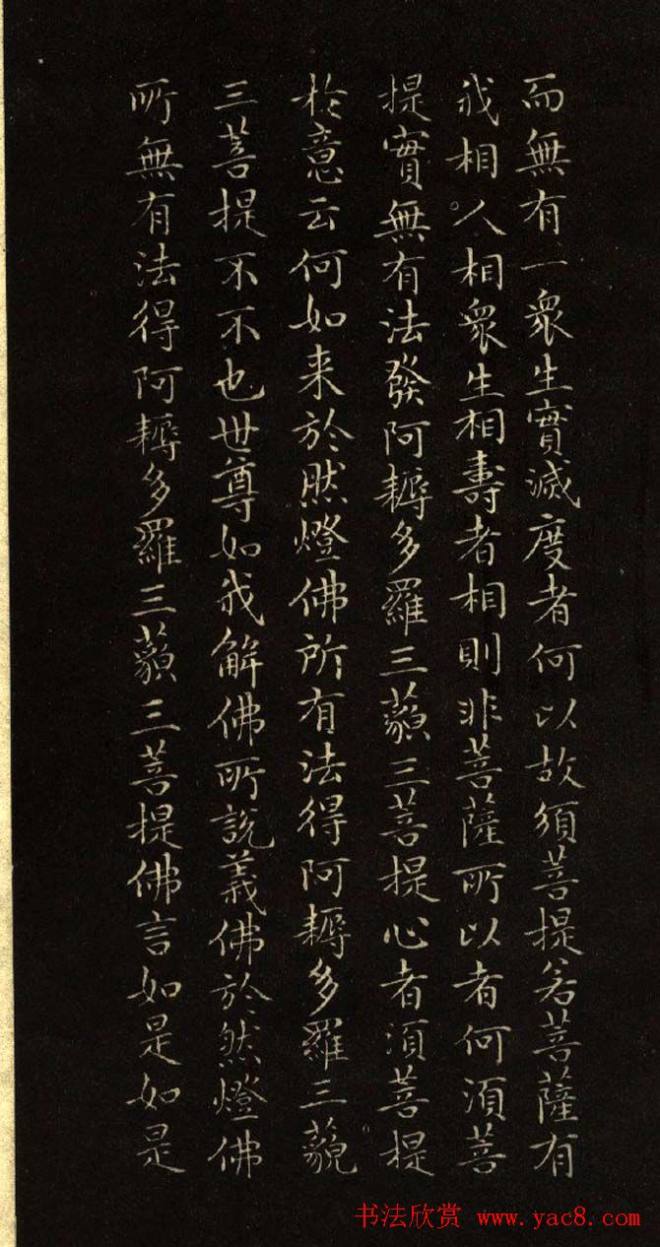 而無有一眾生實滅度者何以故須菩提若菩薩有
我相人相眾生相壽者相則非菩薩所以者何須菩
提實無有法發阿耨多羅三藐三菩提心者須菩提
於意云何如来於然燈佛所有法得阿耨多羅三藐
三菩提不不也世尊如我解佛所說義佛於然燈佛
所無有法得阿耨多羅三藐三菩提佛言如是如是
书法欣赏 www.yac8.com